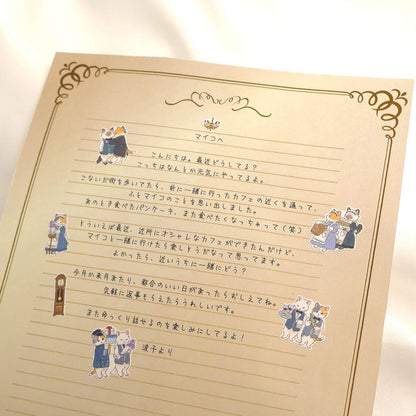 マイコへ
こんにちは。最近どうしてる？
こっちはなんとか元気にやってるよ。
こないだ街を歩いてたら、前に一緒に行ったカフェの近くを通って、
ふとマイコのことを思い出しました。
あのとき食べたパンケーキ、また食べたくなっちゃって（笑）
そういえば最近、近所にオシャレなカフェができたんだけど、
マイコと一緒に行けたら楽しそうだなって思ってます。
よかったら、近いうちに一緒にどう？
今月か来月あたり、都合のいい日があったらおしえてね。
気軽に返事もらえたらうれしいです。
またゆっくり話せるのを楽しみにしてるよ！
涼子より